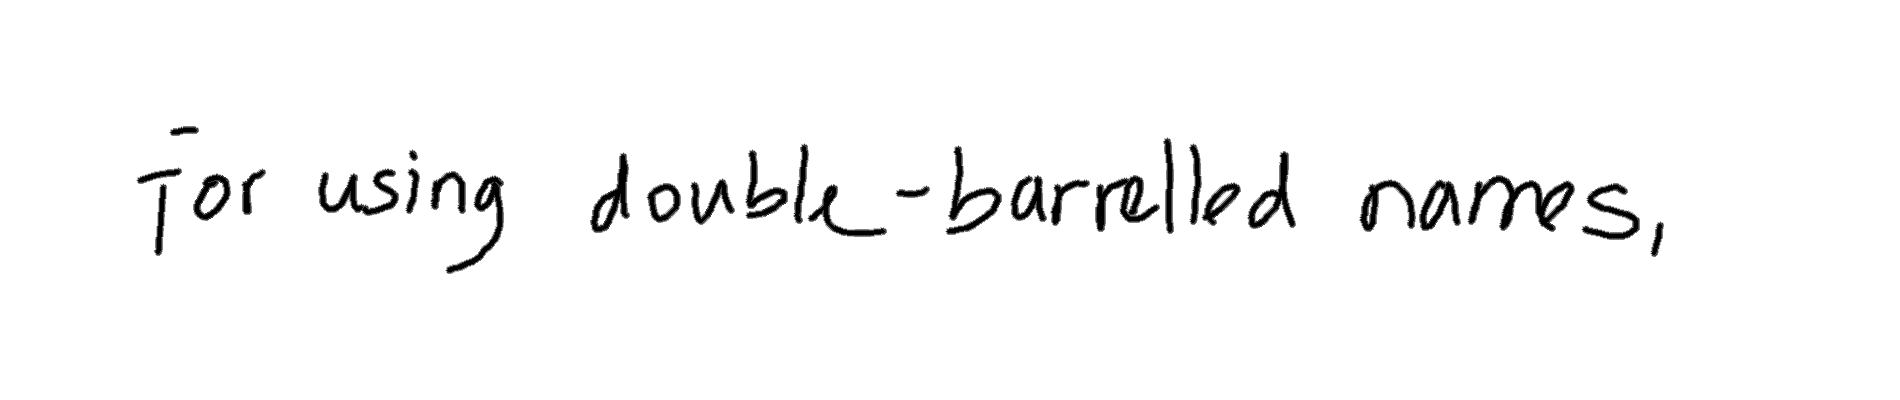 For using double-barrelled names,